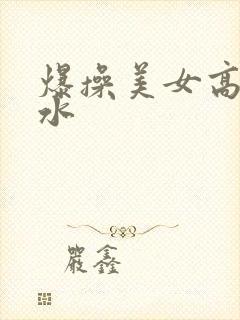 爆操美女高
水
嚴鑫